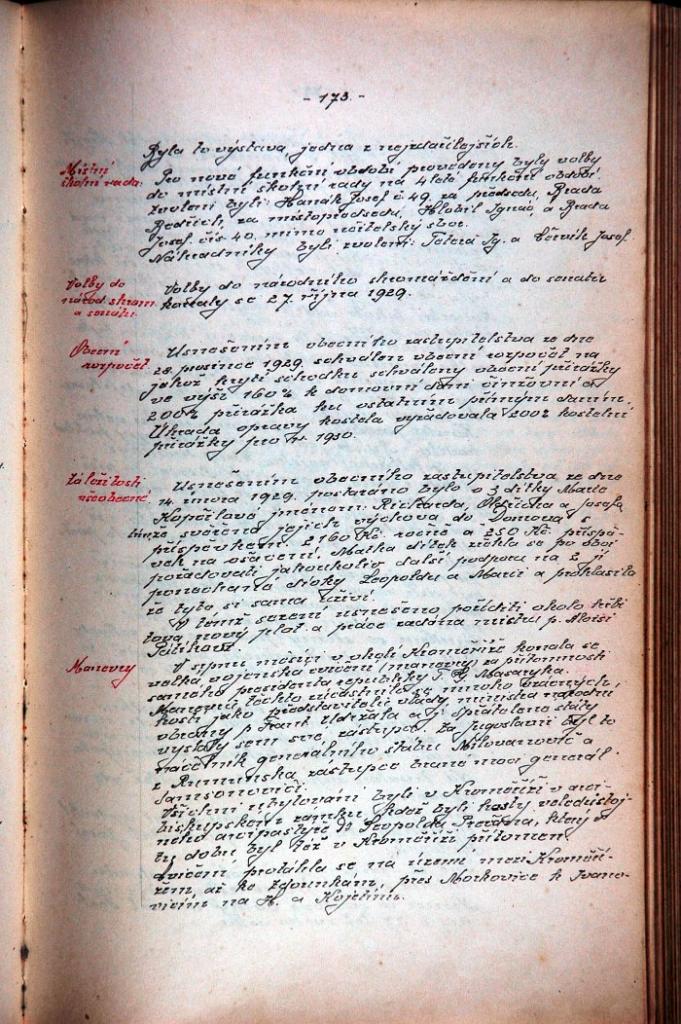 - 173. -
Byla to výstava, jedna z nejzdařilejších.
Místní
školní rada:
Pro nové funkční období provedeny byly volby
do místní školní rady na 4 leté funkční období.
Zvoleni byli: Hanák Josef č. 49. za předsedu, Brada
Bedřich, za místopředsedu, Hlobil Ignác a Brada
Josef čís. 40. mimo učitelský sbor.
Náhradníky byli zvoleni: Ig. a Červík Josef.
Volby do
národ. shrom.
a senátu.
Volby do národního shromáždění a do senátu
konaly se 27. října 1929.
Obecní
rozpočet
Usnešením obecního zastupitelstva ze dne
28. prosince 1929. schválen obecní rozpočet na
jakož krytí schodku schváleny obecní přirážky
ve výši 160% k domovní dani činžovní a
200% přirážka ku ostatním přímým daním.
Úhrada opravy kostela vyžadovala 200% kostelní
přirážky pro r. 1930.
Záležitosti
všeobecné
Usnešením obecního zastupitelstva ze dne
14. února 1929. postaráno bylo o 3 dítky Marie
Kopřilové jménem: Richarda, Oldřicha a Josefa,
svěřena jejich výchova do Domova s
příspěvkem 2160 Kč. ročně a 250 Kč. příspě-
vek na ošacení. Matka dítek zřekla se po obci
požadovati jakoukoliv další podporu na 2 jí
ponechané dívky Leopoldu a Marii a prohlásila
že tyto, si sama uživí.
V témž sezení usnešeno poříditi okolo hřbi
tova nový plot a práce zadána mistru p. Aloisi
Manevry
V srpnu měsíci v okolí Kroměříže konala se
velká vojenská cvičení (manevry) za přítomnosti
samého presidenta republiky T. G. Masaryka.
Manevrů těchto zúčastnilo se mnoho vzácných
hostí jako představitelé vlády, ministra národní
obrany p. Frant. Udržala a j. Spřátelené státy
vyslaly sem své zástupce. Za Jugoslavii byl to
náčelník generálního štábu Milovanović a
z Rumunska, zástupce branné moci generál
Samsonovici.
Všichni ubytováni byli v Kroměříži v arci-
biskupském zámku, kdež byli hosty veledůstoj-
ného arcipastýře Dr. Leopolda Prečana, který v
tu dobu byl též v Kroměříži přítomen.
Cvičení protáhla se na území mezi Kroměří-
žem až ke Zdounkám, přes Morkovice k Ivano-
vicím na H. a Kojetínu.